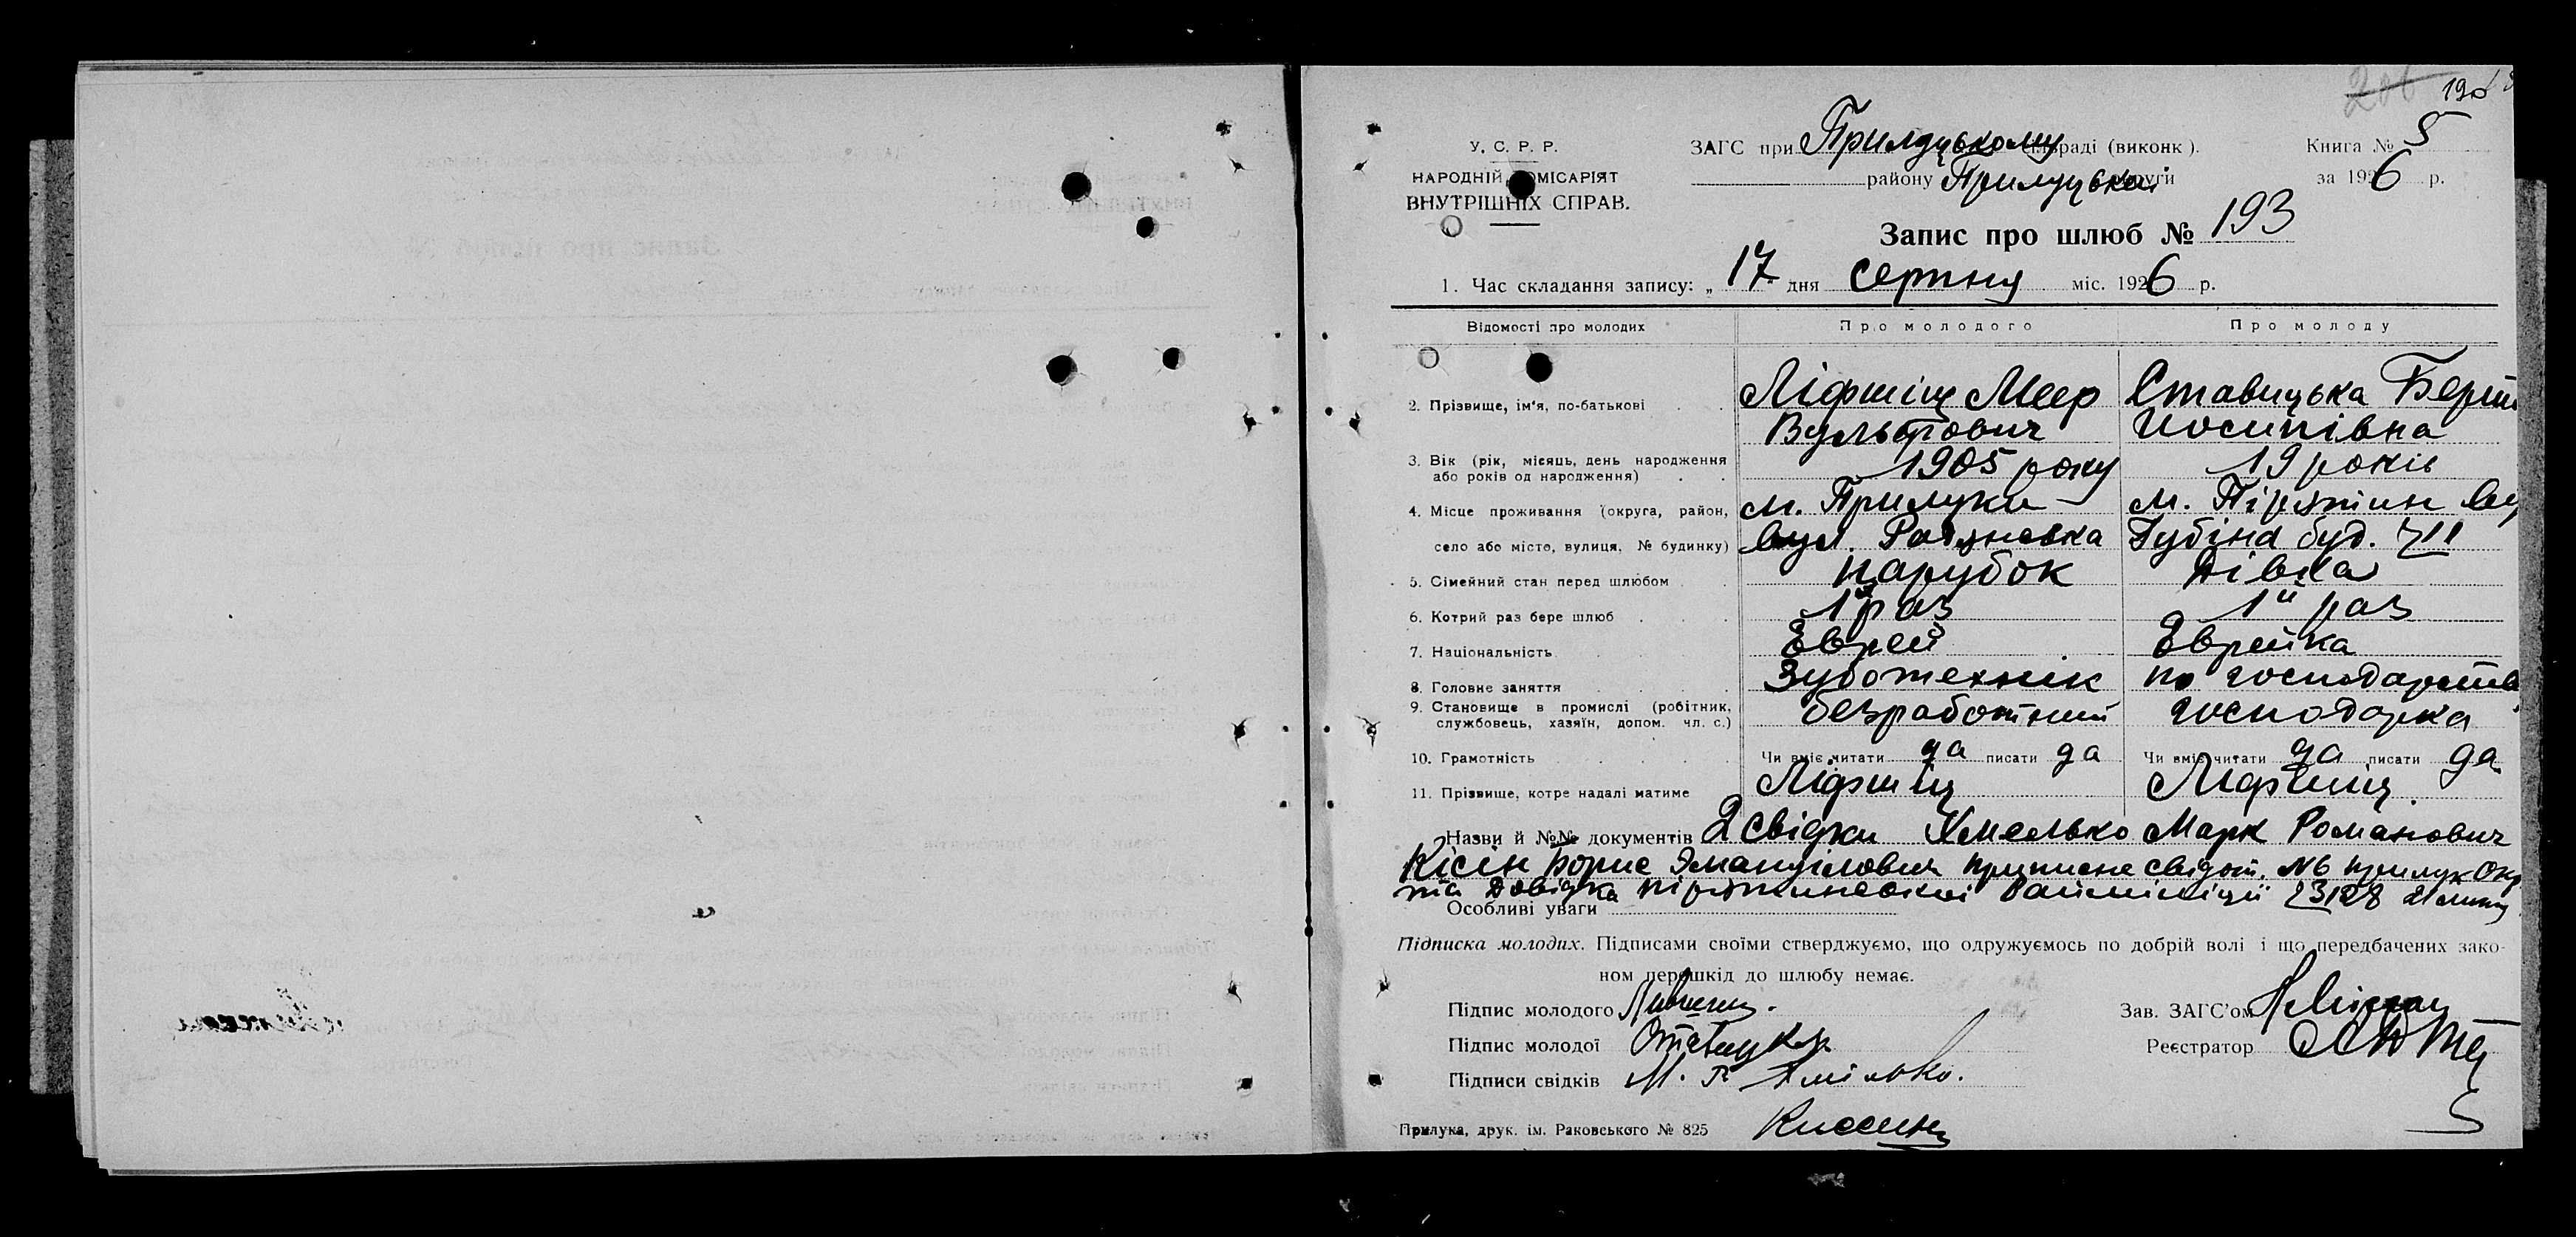 206 190
У. С. Р. Р.
НАРОДНІЙ КОМІСАРІЯТ
ВНУТРІШНІХ СПРАВ.
ЗАГС при Прилуцькому сільраді (виконк).
району Прилуцької округи
Книга № 5
за 1926 р.
Запис про шлюб № 193
1. Час складання запису: „ 17 дня серпня міс. 1926 р.
Відомості про молодих Про молодого Про молоду
2. Прізвище, ім'я, по-батькові Ліфшіц Меер Вульфович Ставицька Берта Иосипівна
3. Вік (рік, місяць, день народження або років од народження) 1905 року 19 років
4. Місце проживання (округа, район, село або місто, вулиця, № будинку) м. Прилуки вул. м. Пірятин Губіна буд.
5. Сімейний стан перед шлюбом парубок Дівка
6. Котрий раз бере шлюб 1й раз 1й раз
7. Національність Еврей Еврейка
8. Головне заняття Зуботехнік по господарстві
9. Становище в промислі (робітник, службовець, хазяїн, допом. чл. с.) безработний господарка
10. Грамотність Чи вміє читати да писати да Чи вміє читати да писати да
11. Прізвище, котре надалі матиме Ліфшіц Ліфшіц
Назви й №№ документів 2 свідки Хмелько Марк Романович
Кісін Борис приписне свідот. №6 Прилук Окр
та Довідка Пірятинської Райміліції 23128
Особливі уваги
Підписка молодих. Підписами своїми стверджуємо, що одружуємось по добрій волі і що передбачених зако-
ном перешкід до шлюбу немає.
Підпис молодого
Підпис молодої
Підписи свідків М. Р. Хмілько.
Киссинъ
Зав. ЗАГС'ом
Реєстратор
Прилука, друк. ім. Раковського № 825